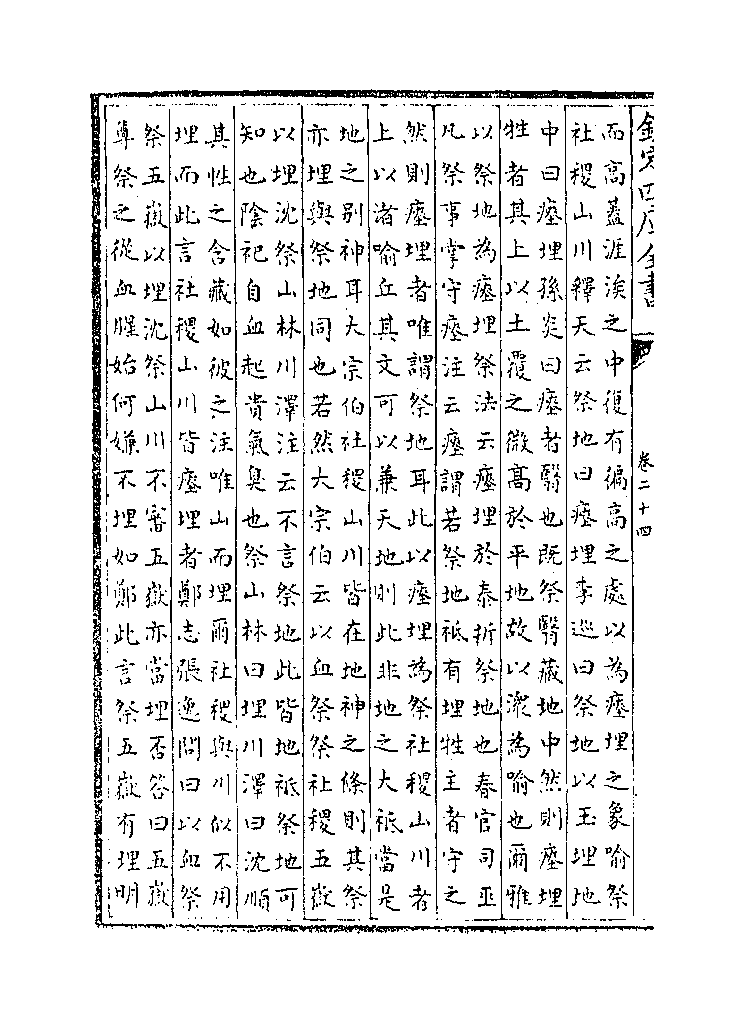 欽定四庫全書
卷二十四
而高蓋涯涘之中復有偏高之處以為瘞埋之象喻祭
社稷山川釋天云祭地曰瘞埋李巡曰祭地以玉埋地
中曰瘞埋孫炎曰瘞者翳也既祭翳藏地中然則瘞埋
牲者其上以土覆之微高於平地故以漘為喻也爾雅
以祭地為瘞埋祭法云瘞埋於泰折祭地也春官司巫
凡祭事掌守瘞注云瘞謂若祭地祗有埋牲主者守之
然則瘞埋者唯謂祭地耳此以瘞埋為祭社稷山川者
上以渚喻丘其文可以兼天地則此非地之大祗當是
地之别神耳大宗伯社稷山川皆在地神之條則其祭
亦埋與祭地同也若然大宗伯云以血祭祭社稷五嶽
以埋沈祭山林川澤注云不言祭地此皆地祗祭地可
知也陰祀自血起貴氣臭也祭山林曰埋川澤曰沈順
其性之含藏如彼之注唯山而埋爾社稷與川似不用
埋而此言社稷山川皆瘞埋者鄭志張逸問曰以血祭
祭五嶽以埋沈祭山川不審五嶽亦當埋否答曰五嶽
尊祭之從血腥始何嫌不埋如鄭此言祭五嶽有埋明